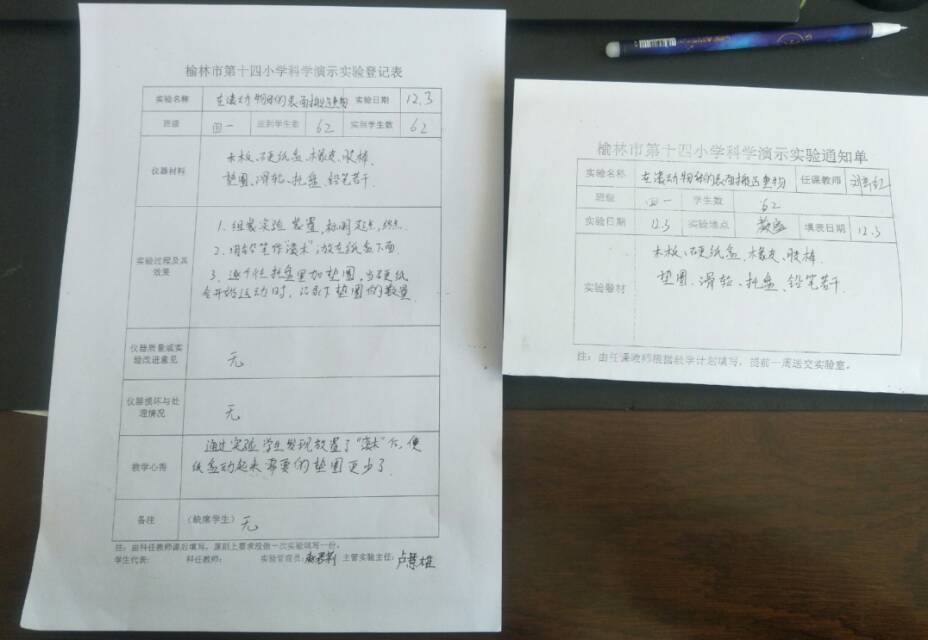 榆林市第十四小学科学演示实验登记表
实验名称 在滚动物体的表面搬运重物 实验日期 12.3
班级 四一 应到学生数 62 实到学生数 62
仪器材料
木板、硬纸盒、橡皮、胶棒、
垫圈、滑轮、托盘、铅笔若干
实验过程及其
效果
1. 组装实验装置,标明起点,终点.
2. 用铅笔作“滚木”,放在纸盒下面.
3. 逐个往托盘里加垫圈,当硬纸
盒开始运动时,记录下垫圈的数量
仪器质量或实
验改进意见
无
仪器损坏与处
理情况
无
教学心得
通过实验,学生发现放置了“滚木”后,使
纸盒动起来需要的垫圈更少了
备注 (缺席学生) 无
注:由科任教师课后填写,原则上要求段做一次实验填写一份。
学生代表: 科任教师: 实验管理员: 主管实验主任: 卢慧雄
榆林市第十四小学科学演示实验通知单
实验名称 在滚动物体的表面搬运重物 任课教师
班级 四一 学生数 62
实验日期 12.3 实验地点 教室 填表日期 12.3
实验器材
木板、硬纸盒、橡皮、胶棒
垫圈、滑轮、托盘、铅笔若干.
注:由任课教师根据教学计划填写,提前一周送交实验室。